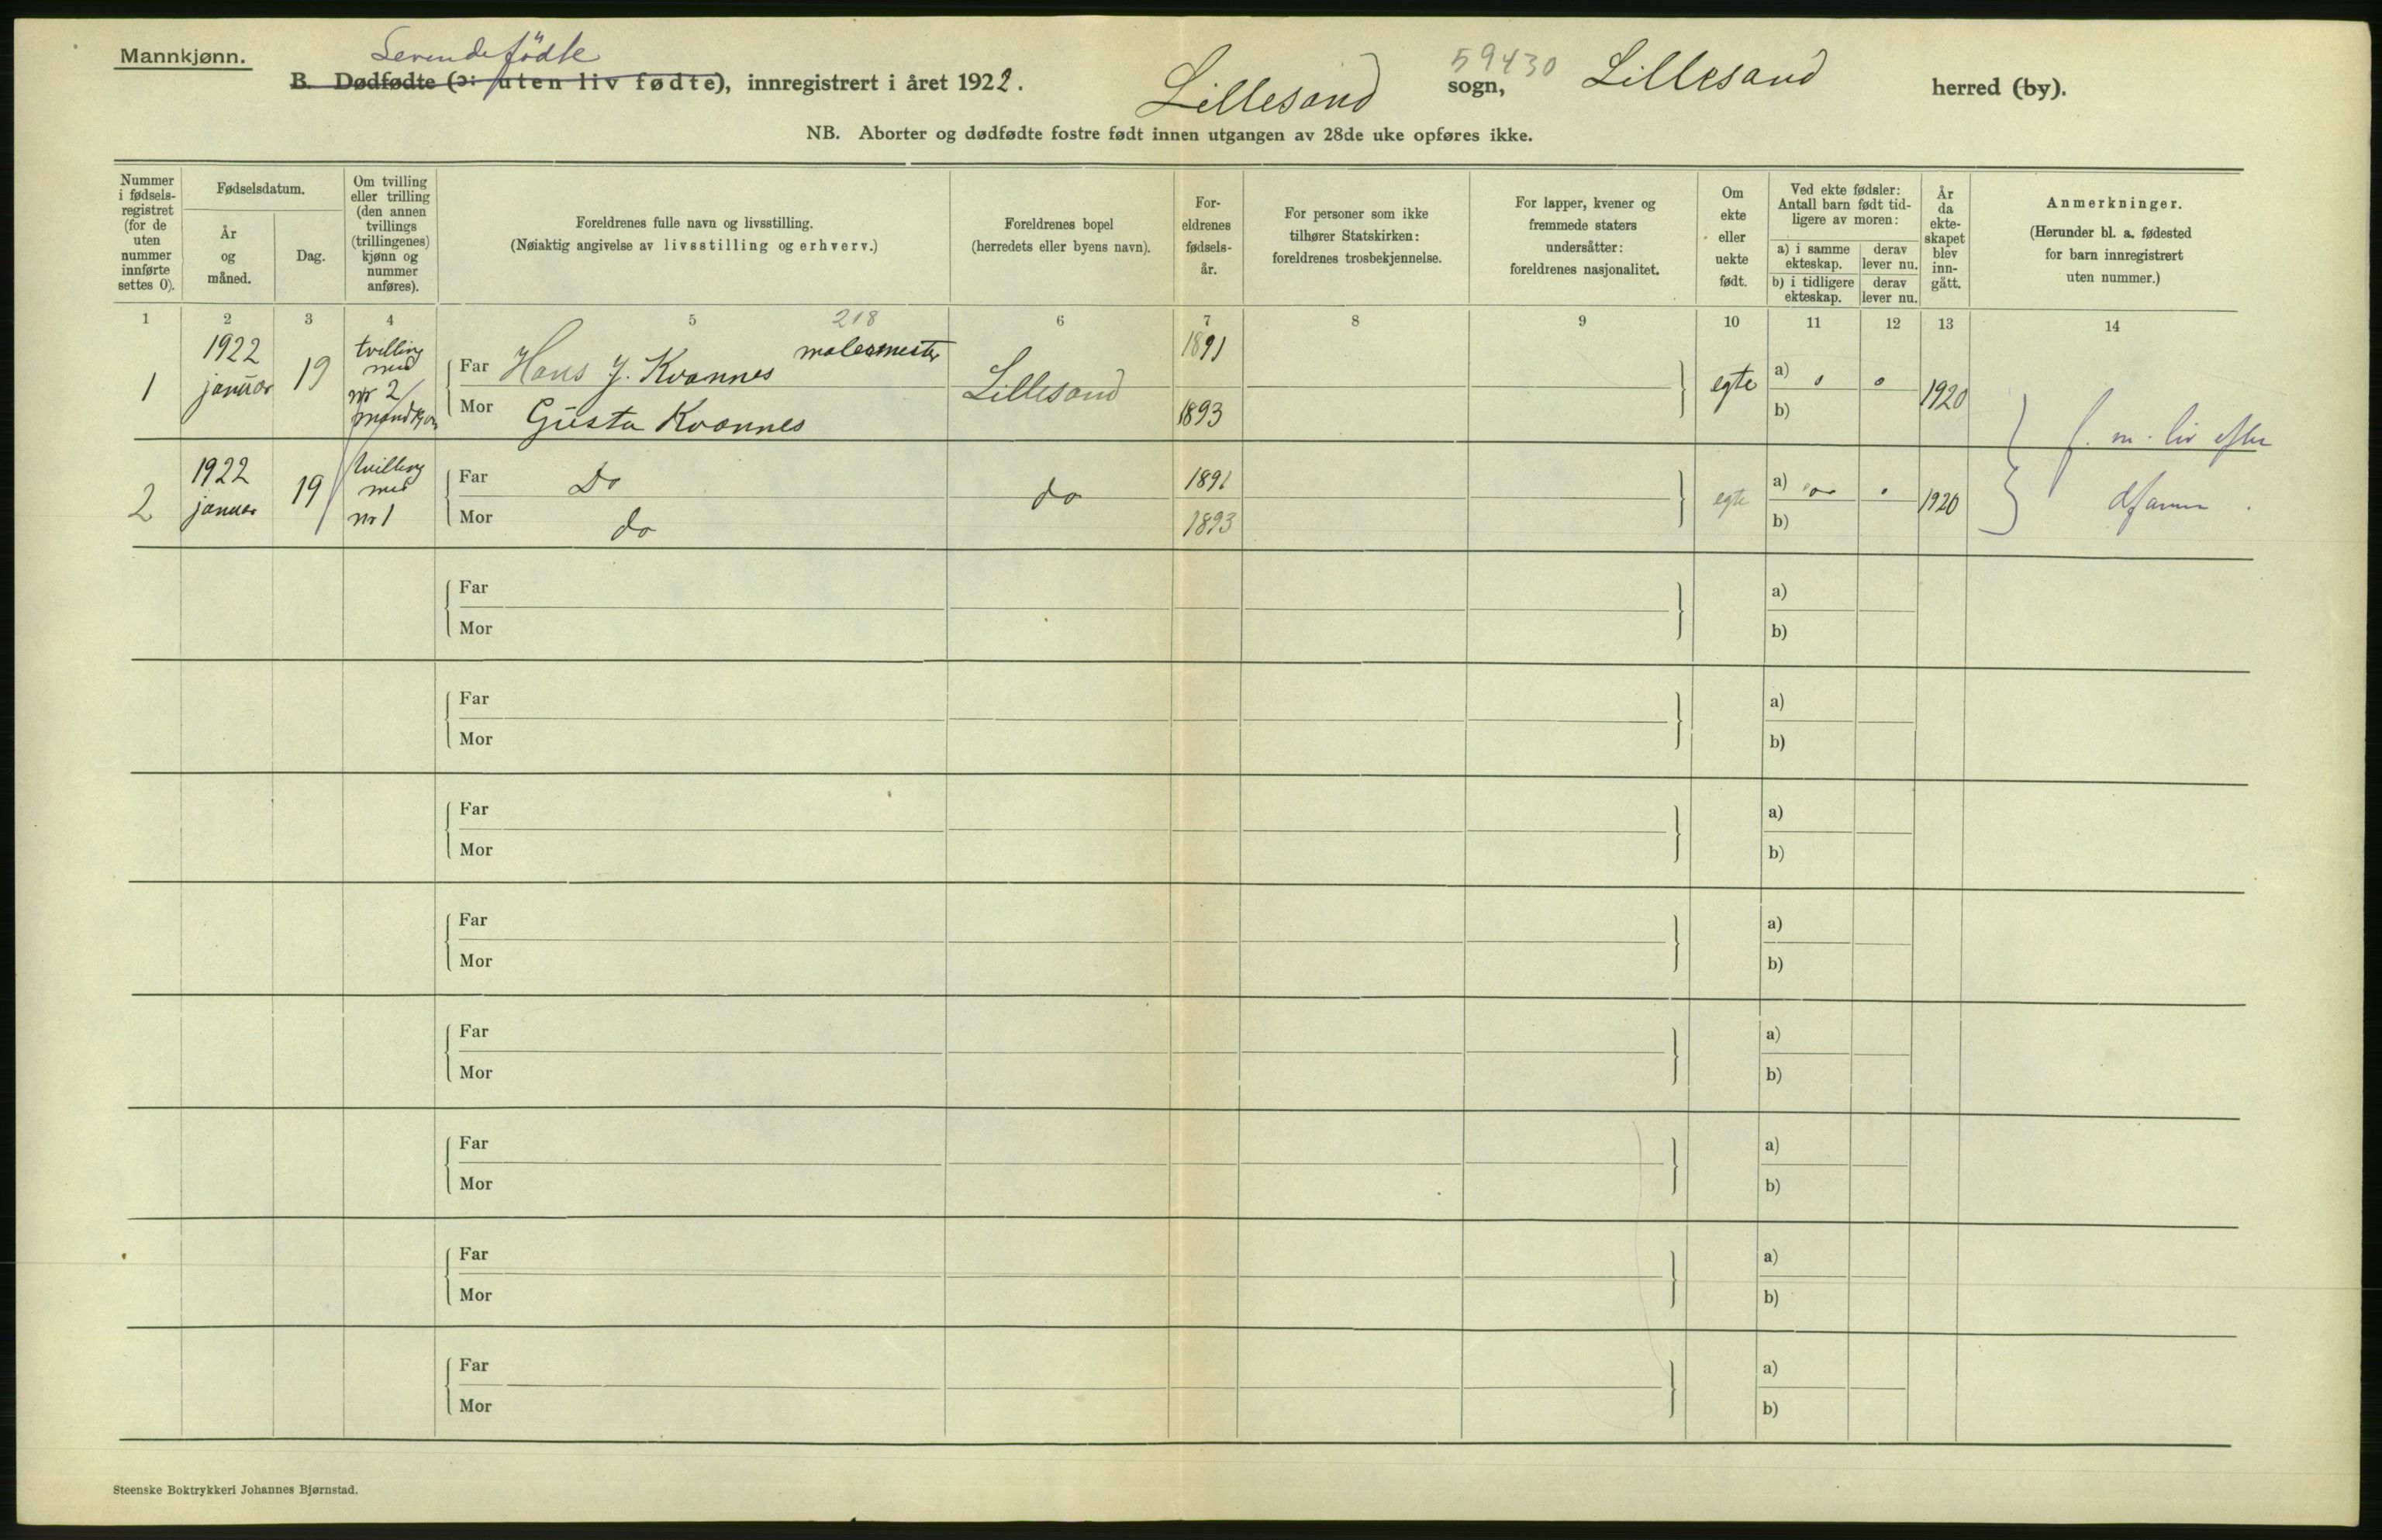 Mannkjønn.
Levendefödte
B. Dødfødte (ɔ: uten liv fødte), innregistrert i året 1922. Lillesand sogn, 59430 Lillesand herred (by).
NB. Aborter og dødfødte fostre født innen utgangen av 28de uke opføres ikke.
Nummer
i fødsels-
registret
(for de
uten
nummer
innførte
settes 0).
Fødselsdatum.
År
og
måned.
Dag.
Om tvilling
eller trilling
(den annen
tvillings
(trillingenes)
kjønn og
nummer
anføres).
Foreldrenes fulle navn og livsstilling.
(Nøiaktig angivelse av livsstilling og erhverv.)
Foreldrenes bopel
(herredets eller byens navn).
For-
eldrenes
fødsels-
år.
For personer som ikke
tilhører Statskirken:
foreldrenes trosbekjennelse.
For lapper, kvener og
fremmede staters
undersåtter:
foreldrenes nasjonalitet.
Om
ekte
eller
uekte
født.
Ved ekte fødsler:
Antall barn født tid-
ligere av moren:
a) i samme
ekteskap.
derav
lever nu.
b) i tidligere
ekteskap.
derav
lever nu.
År
da
ekte-
skapet
blev
inn-
gått.
Anmerkninger.
(Herunder bl. a. fødested
for barn innregistrert
uten nummer.)
1 2 3 4 5 6 7 8 9 10 11 12 13 14
218
1
1922
januar
19
tvilling
med
nr 2/
mandkjøn
Far Hans J. Kvannes malermester
Mor Gusta Kvannes
Lillesand
1891
1893
egte
a) 0 0
b)
1920
2
1922
januar
19
tvilling
med
nr 1
Far Do
Mor do
do
1891
1893
egte
a) 0
b)
1920
f. m. liv efter
Far
Mor
a)
b)
Far
Mor
a)
b)
Far
Mor
a)
b)
Far
Mor
a)
b)
Far
Mor
a)
b)
Far
Mor
a)
b)
Far
Mor
a)
b)
Far
Mor
a)
b)
Steenske Boktrykkeri Johannes Bjørnstad.